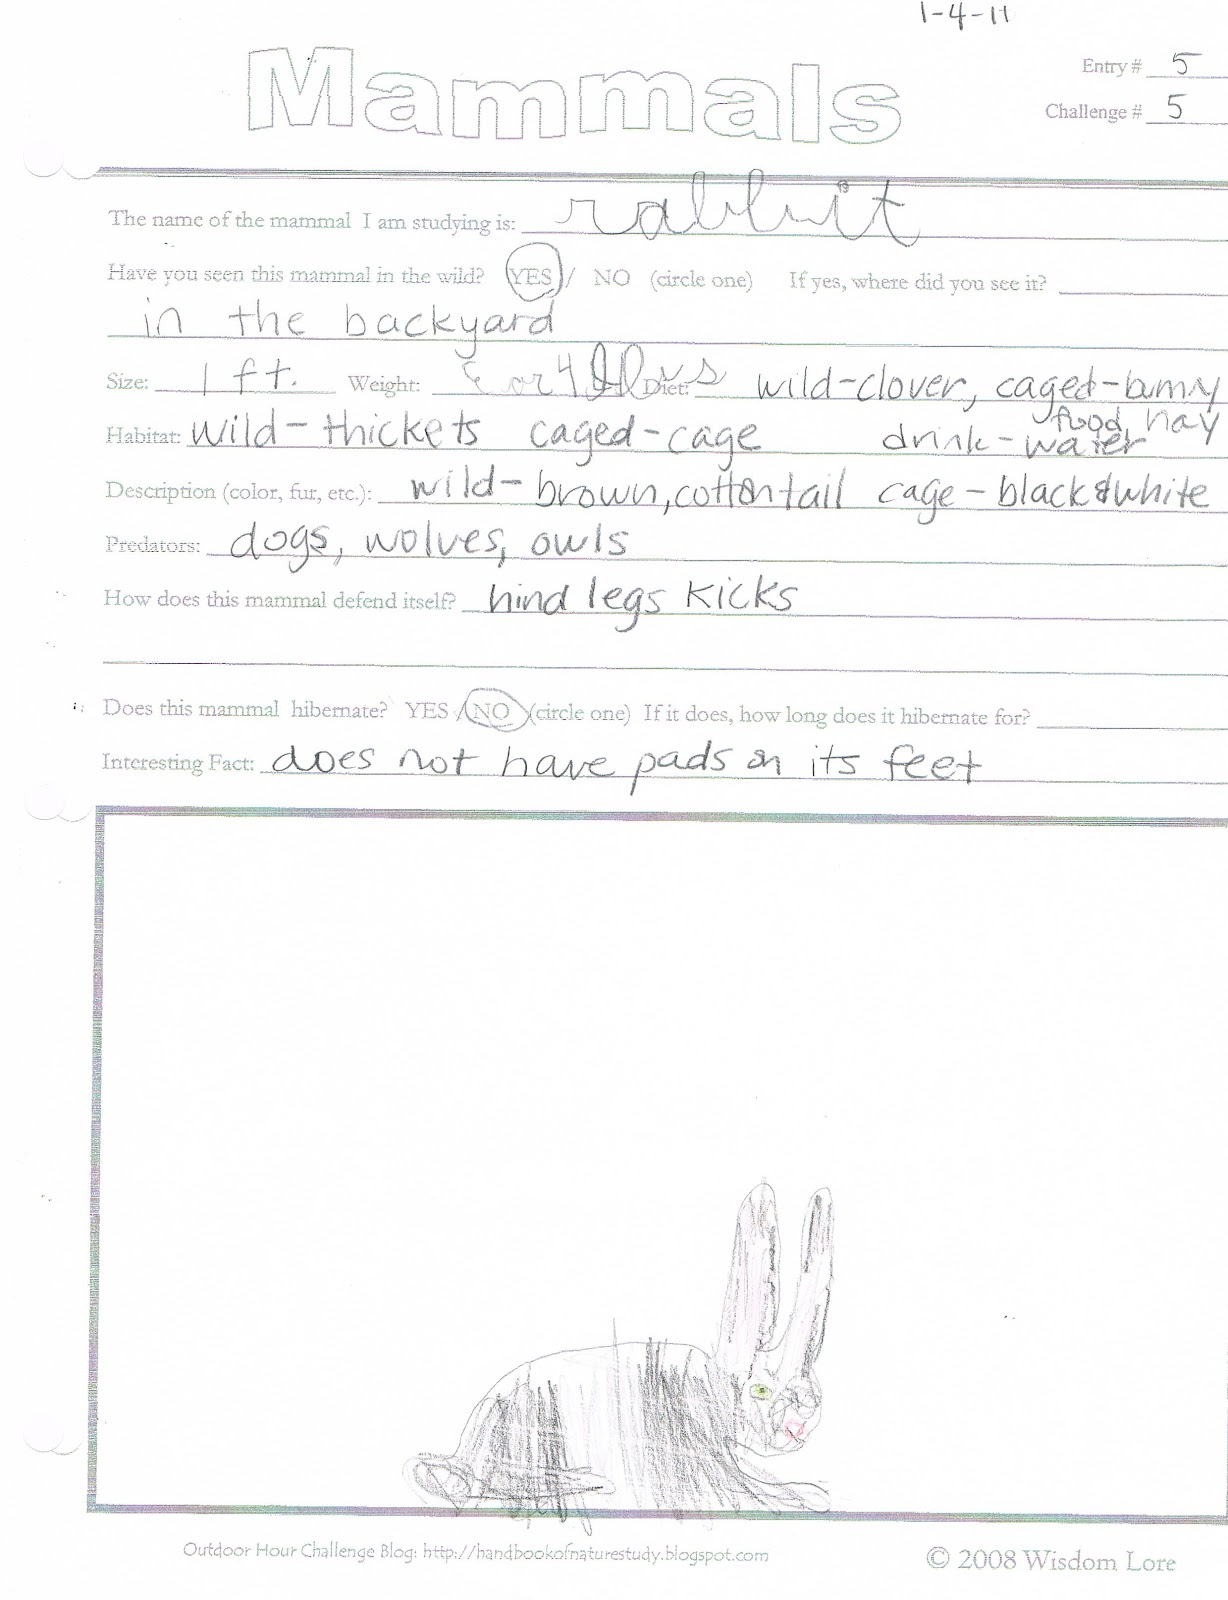 1-4-11
Mammals
Entry # 5
Challenge # 5
The name of the mammal I am studying is: rabbit
Have you seen this mammal in the wild? YES / NO (circle one) If yes, where did you see it?
in the backyard
Size: 1 ft. Weight: or 4 Diet: wild-clover, caged-bunny
food, hay
Habitat: wild-thickets caged-cage drink-water
Description (color, fur, etc.): wild-brown, cottontail cage-black & white
Predators: dogs, wolves, owls
How does this mammal defend itself? hind legs kicks
Does this mammal hibernate? YES / NO (circle one) If it does, how long does it hibernate for?
Interesting Fact: does not have pads on its feet
Outdoor Hour Challenge Blog: http://handbookofnaturestudy.blogspot.com
© 2008 Wisdom Lore